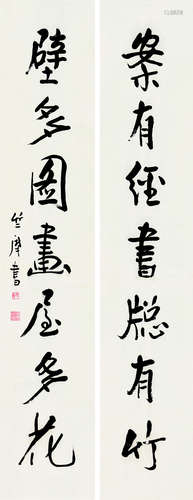 案有經書牕有竹
壁多圖畫屋多花
竺摩書